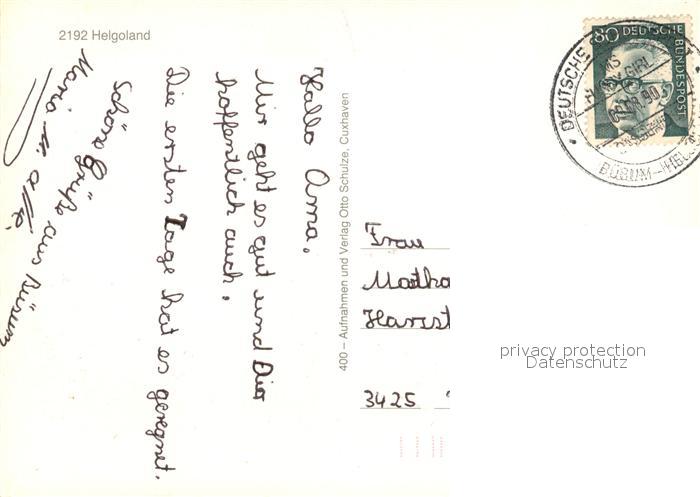 2192 Helgoland
Hallo Oma,
Mir geht es gut und Dir
hoffentlich auch.
Die ersten Tage hat es geregnet.
Schöne Grüße aus Büsum
Maria
400 – Aufnahmen und Verlag Otto Schulze, Cuxhaven
80 DEUTSCHE
BUNDESPOST
DEUTSCHE
MS
GIRL
90
BÜSUM–HEL
Frau
3425
privacy protection
Datenschutz